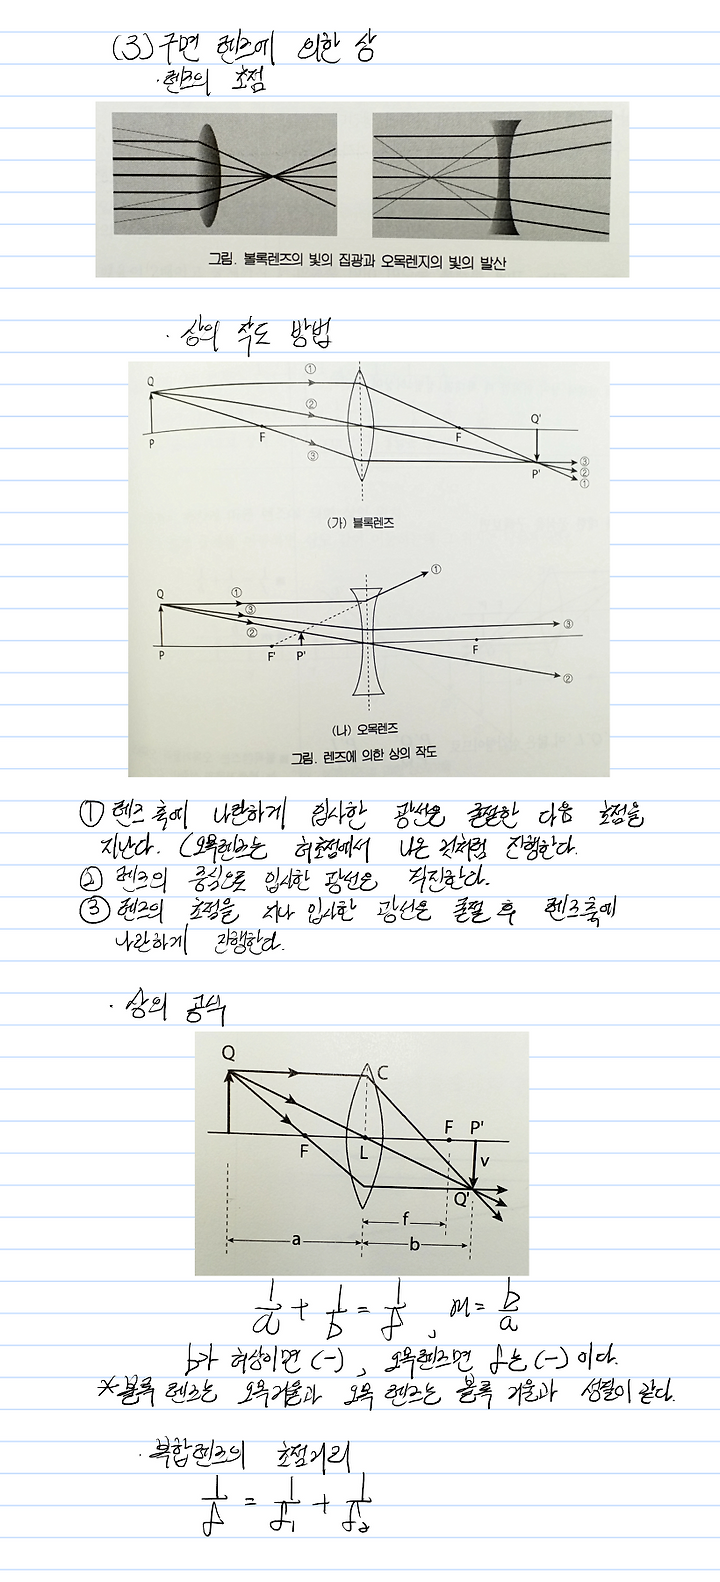 (3) 구면 렌즈에 의한 상
· 렌즈의 초점
그림. 볼록렌즈의 빛의 집광과 오목렌지의 빛의 발산
· 상의 작도 방법
Q ① ② ③ P F F Q' P' ③ ② ①
(가) 블록렌즈
Q ① ③ ② P F' P' F ① ③ ②
(나) 오목렌즈
그림. 렌즈에 의한 상의 작도
① 렌즈 축에 나란하게 입사한 광선은 굴절한 다음 초점을
지난다. (오목렌즈는 허초점에서 나온 것처럼 진행한다.
② 렌즈의 중심으로 입사한 광선은 직진한다.
③ 렌즈의 초점을 지나 입사한 광선은 굴절 후 렌즈축에
나란하게 진행한다.
· 상의 공식
Q C F L F P' v Q' f a b
1/a + 1/b = 1/f , m = b/a
b가 허상이면 (-) , 오목렌즈면 f는 (-) 이다.
*볼록 렌즈는 오목거울과 오목 렌즈는 볼록 거울과 성질이 같다.
· 복합렌즈의 초점거리
1/f = 1/f₁ + 1/f₂